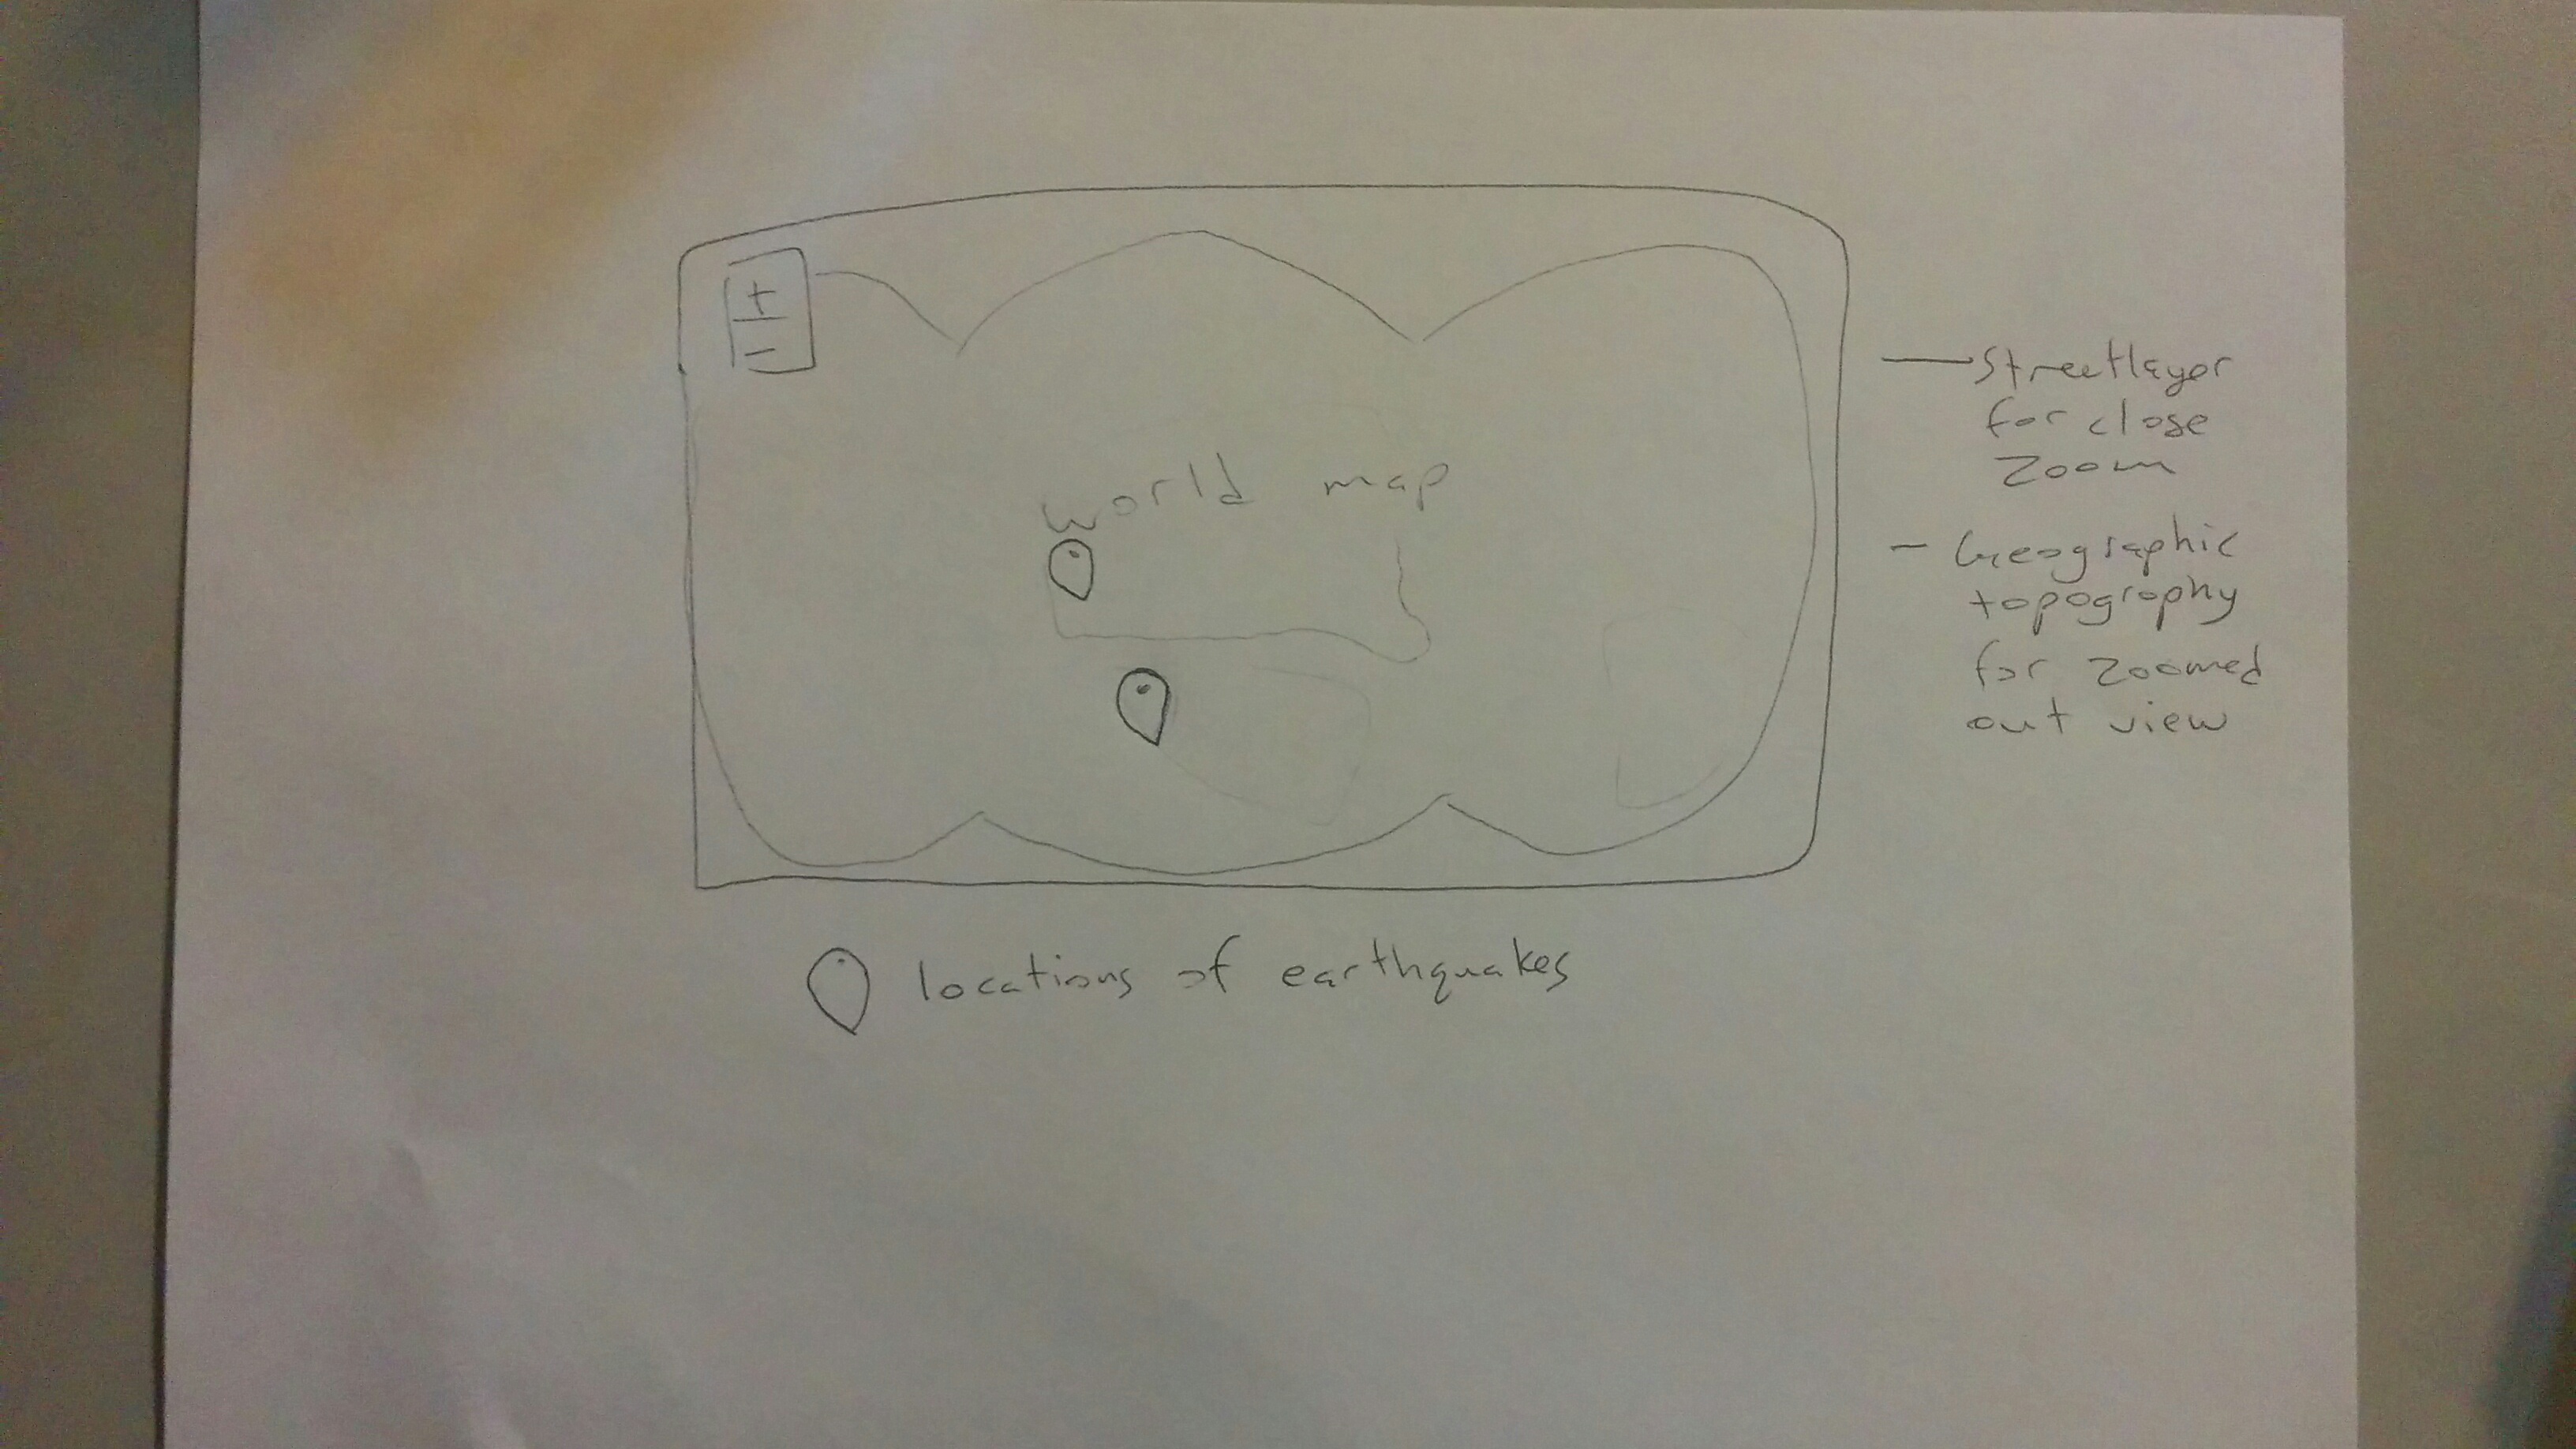 +
-
World map
Streetlayer
for close
zoom
- Geographic
topography
for zoomed
out view
locations of earthquakes